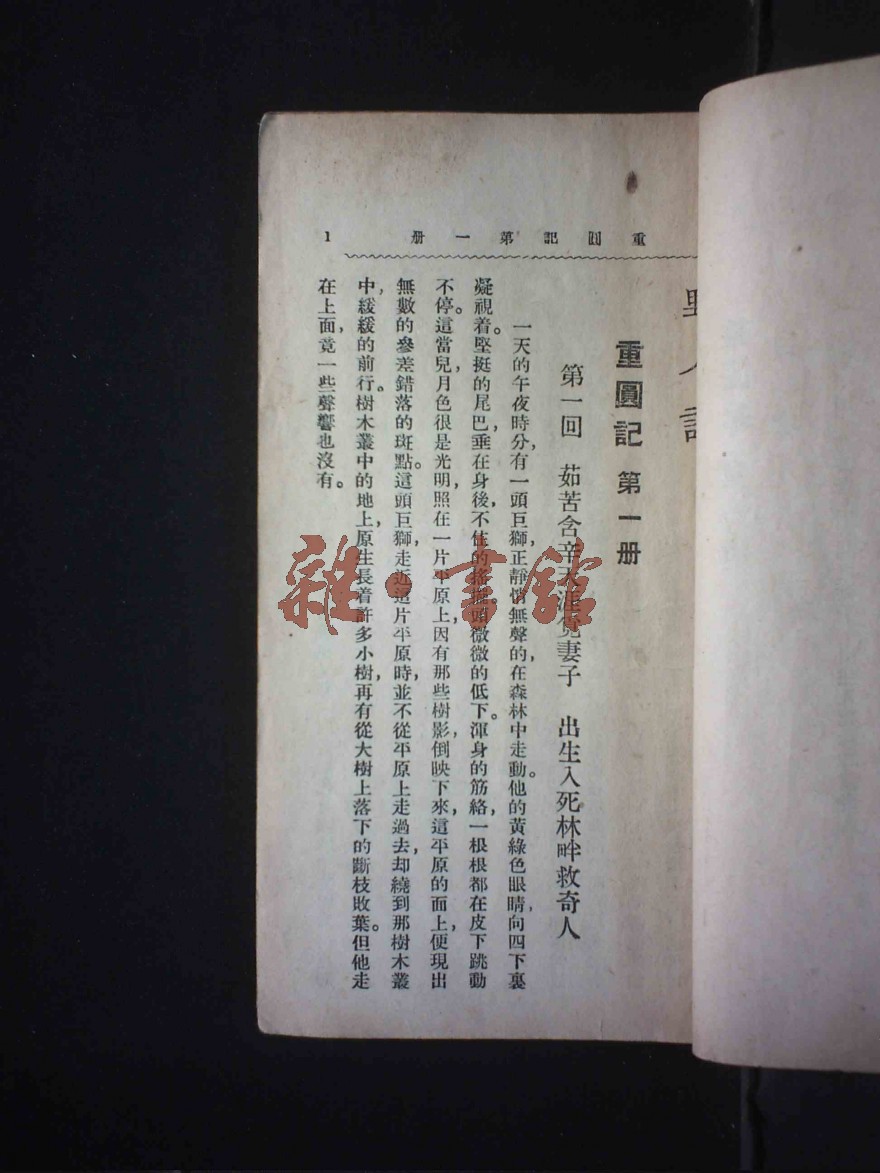 重圓記第一册 1
野人記
重圓記 第一册
第一回 茹苦含辛天涯覓妻子 出生入死林畔救奇人
一天的午夜時分，有一頭巨獅，正靜悄無聲的，在森林中走動。他的黃綠色眼睛，向四下裏
凝視着。堅挺的尾巴，垂在身後，不住的搖擺。頭微微的低下。渾身的筋絡，一根根都在皮下跳動
不停。這當兒，月色很是光明，照在一片平原上，因有那些樹影，倒映下來，這平原的面上，便現出
無數的參差錯落的斑點。這頭巨獅，走近這片平原時，並不從平原上走過去，却繞到那樹木叢
中，緩緩的前行。樹木叢中的地上，原生長着許多小樹，再有從大樹上落下的斷枝敗葉。但他走
在上面，竟一些聲響也沒有。
雜·書館